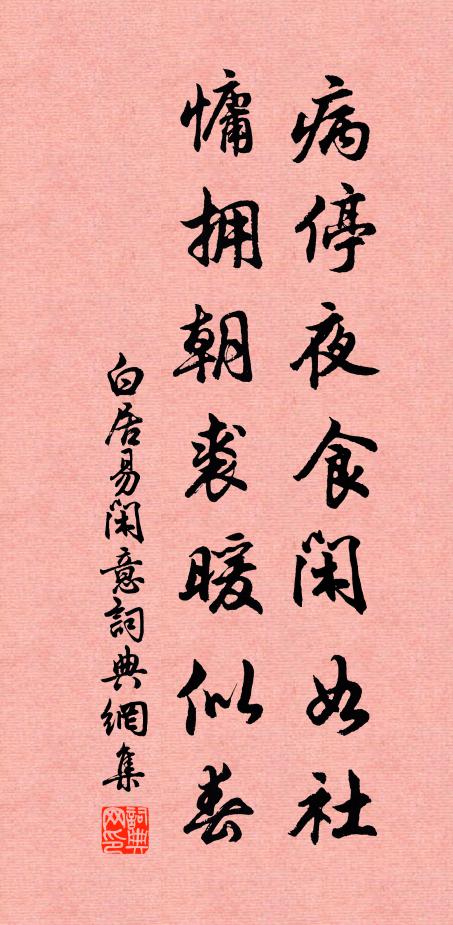 病停夜食閑如社
慵拥朝裘暖似春
白居易閑意詞典網集
詞典网印